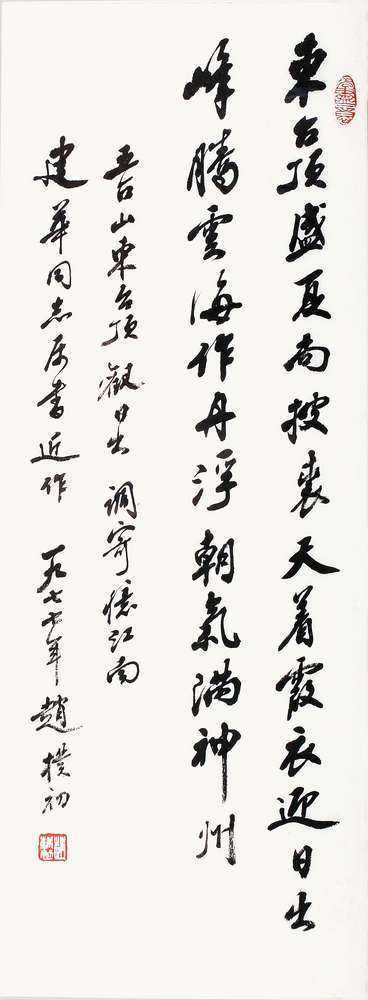 東台頂盛夏尚披裘天着霞衣迎日出
峰騰雲海作丹浮朝氣滿神州
五台山東台頂觀日出 調寄憶江南
建華同志属書近作 一九七七年趙樸初